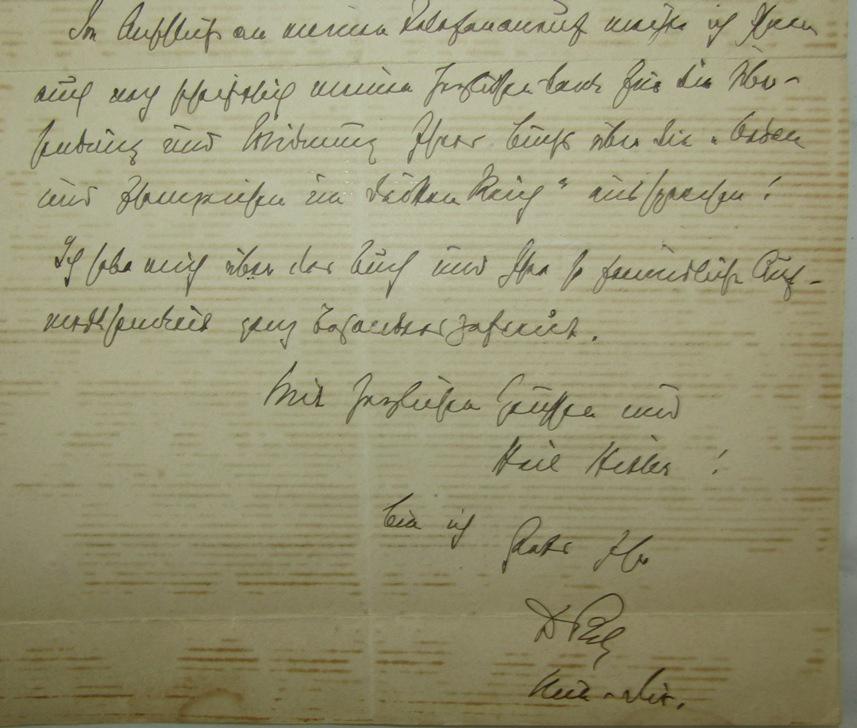 Im Anschluß an meinen Telefonanruf möchte ich Ihnen
auch noch schriftlich meinen herzlichen Dank für die Über-
sendung und Widmung Ihres Buchs über die „Orden
und Ehrenzeichen im Dritten Reich“ aussprechen!
Ich habe mich über das Buch und Ihre so freundliche Auf-
merksamkeit ganz besonders gefreut.
Mit herzlichen Grüßen und
Heil Hitler!
bin ich
stets Ihr